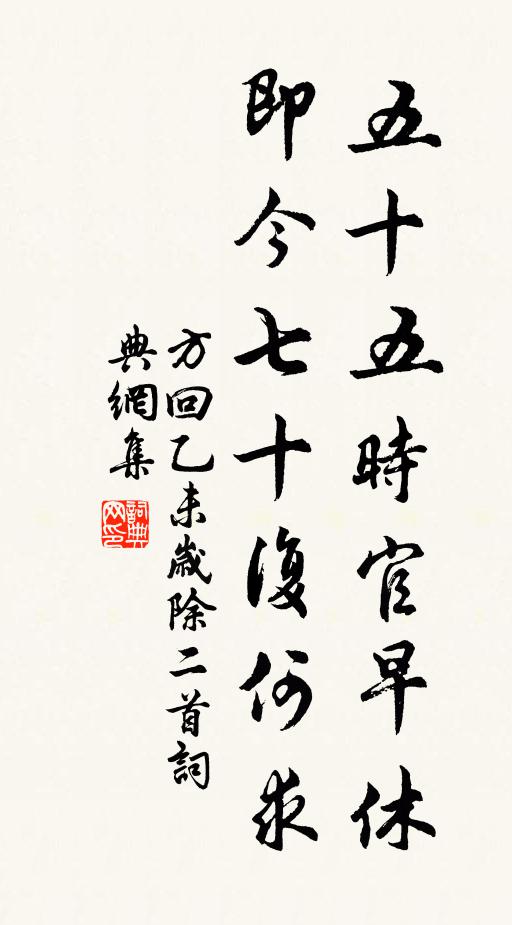 五十五時官早休
即今七十復何求
方回乙未歲除二首詞
典網集
詞典
网印